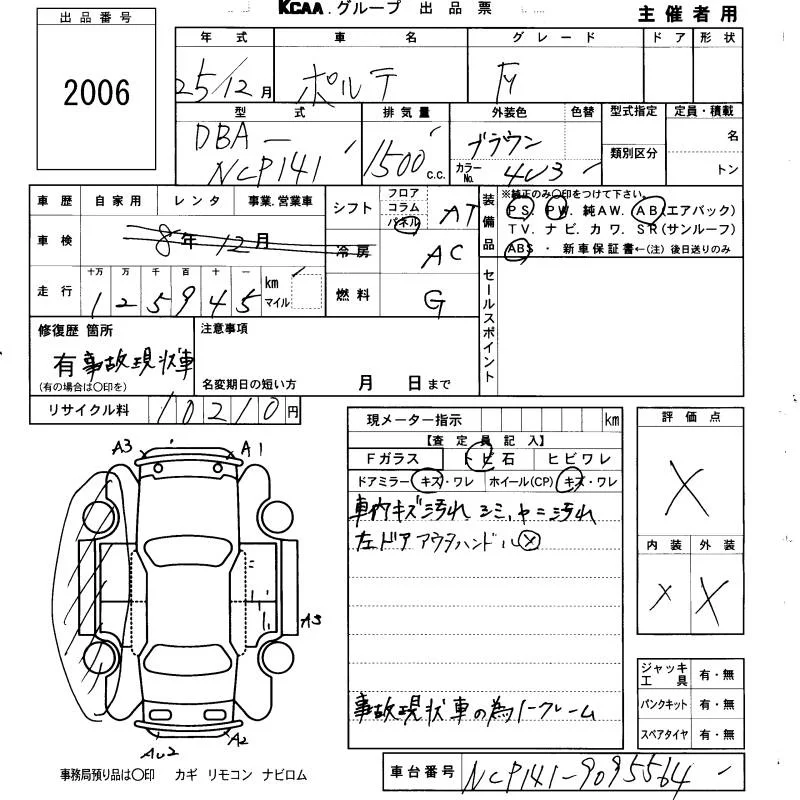 KCAA.グループ 出品票
主催者用
出品番号
2006
年式 車名 グレード ドア 形状
25/12月 ポルテ
型式 排気量 外装色 色替 型式指定 定員・積載
DBA- NCP141 1500 c.c. ブラウン
カラーNo. 4U3
類別区分 名 トン
車歴 自家用 レンタ 事業.営業車 シフト フロア コラム パネル AT
車検 8年12月 冷房 AC
走行 十万 万 千 百 十 一 125945 km マイル 燃料 G
装備品 ※純正のみ○印をつけて下さい。
PS. PW. 純AW. AB(エアバック)
TV. ナビ. カワ. SR(サンルーフ)
ABS ・ 新車保証書←(注) 後日送りのみ
セールスポイント
修復歴 箇所 注意事項
有 事故現状車
(有の場合は○印を) 名変期日の短い方 月 日まで
リサイクル料 10210円
現メーター指示 km
【査定員記入】
Fガラス トビ石 ヒビワレ
ドアミラー キズ・ワレ ホイール(CP) キズ・ワレ
車内キズ汚れ シミ、ヤニ汚れ
左ドアアウタハンドル×
事故現状車の為ノークレーム
評価点
×
内装 外装
× ×
ジャッキ工具 有・無
パンクキット 有・無
スペアタイヤ 有・無
A3 A1
A3
AU2 A2
事務局預り品は○印 カギ リモコン ナビロム
車台番号 NCP141-9095564